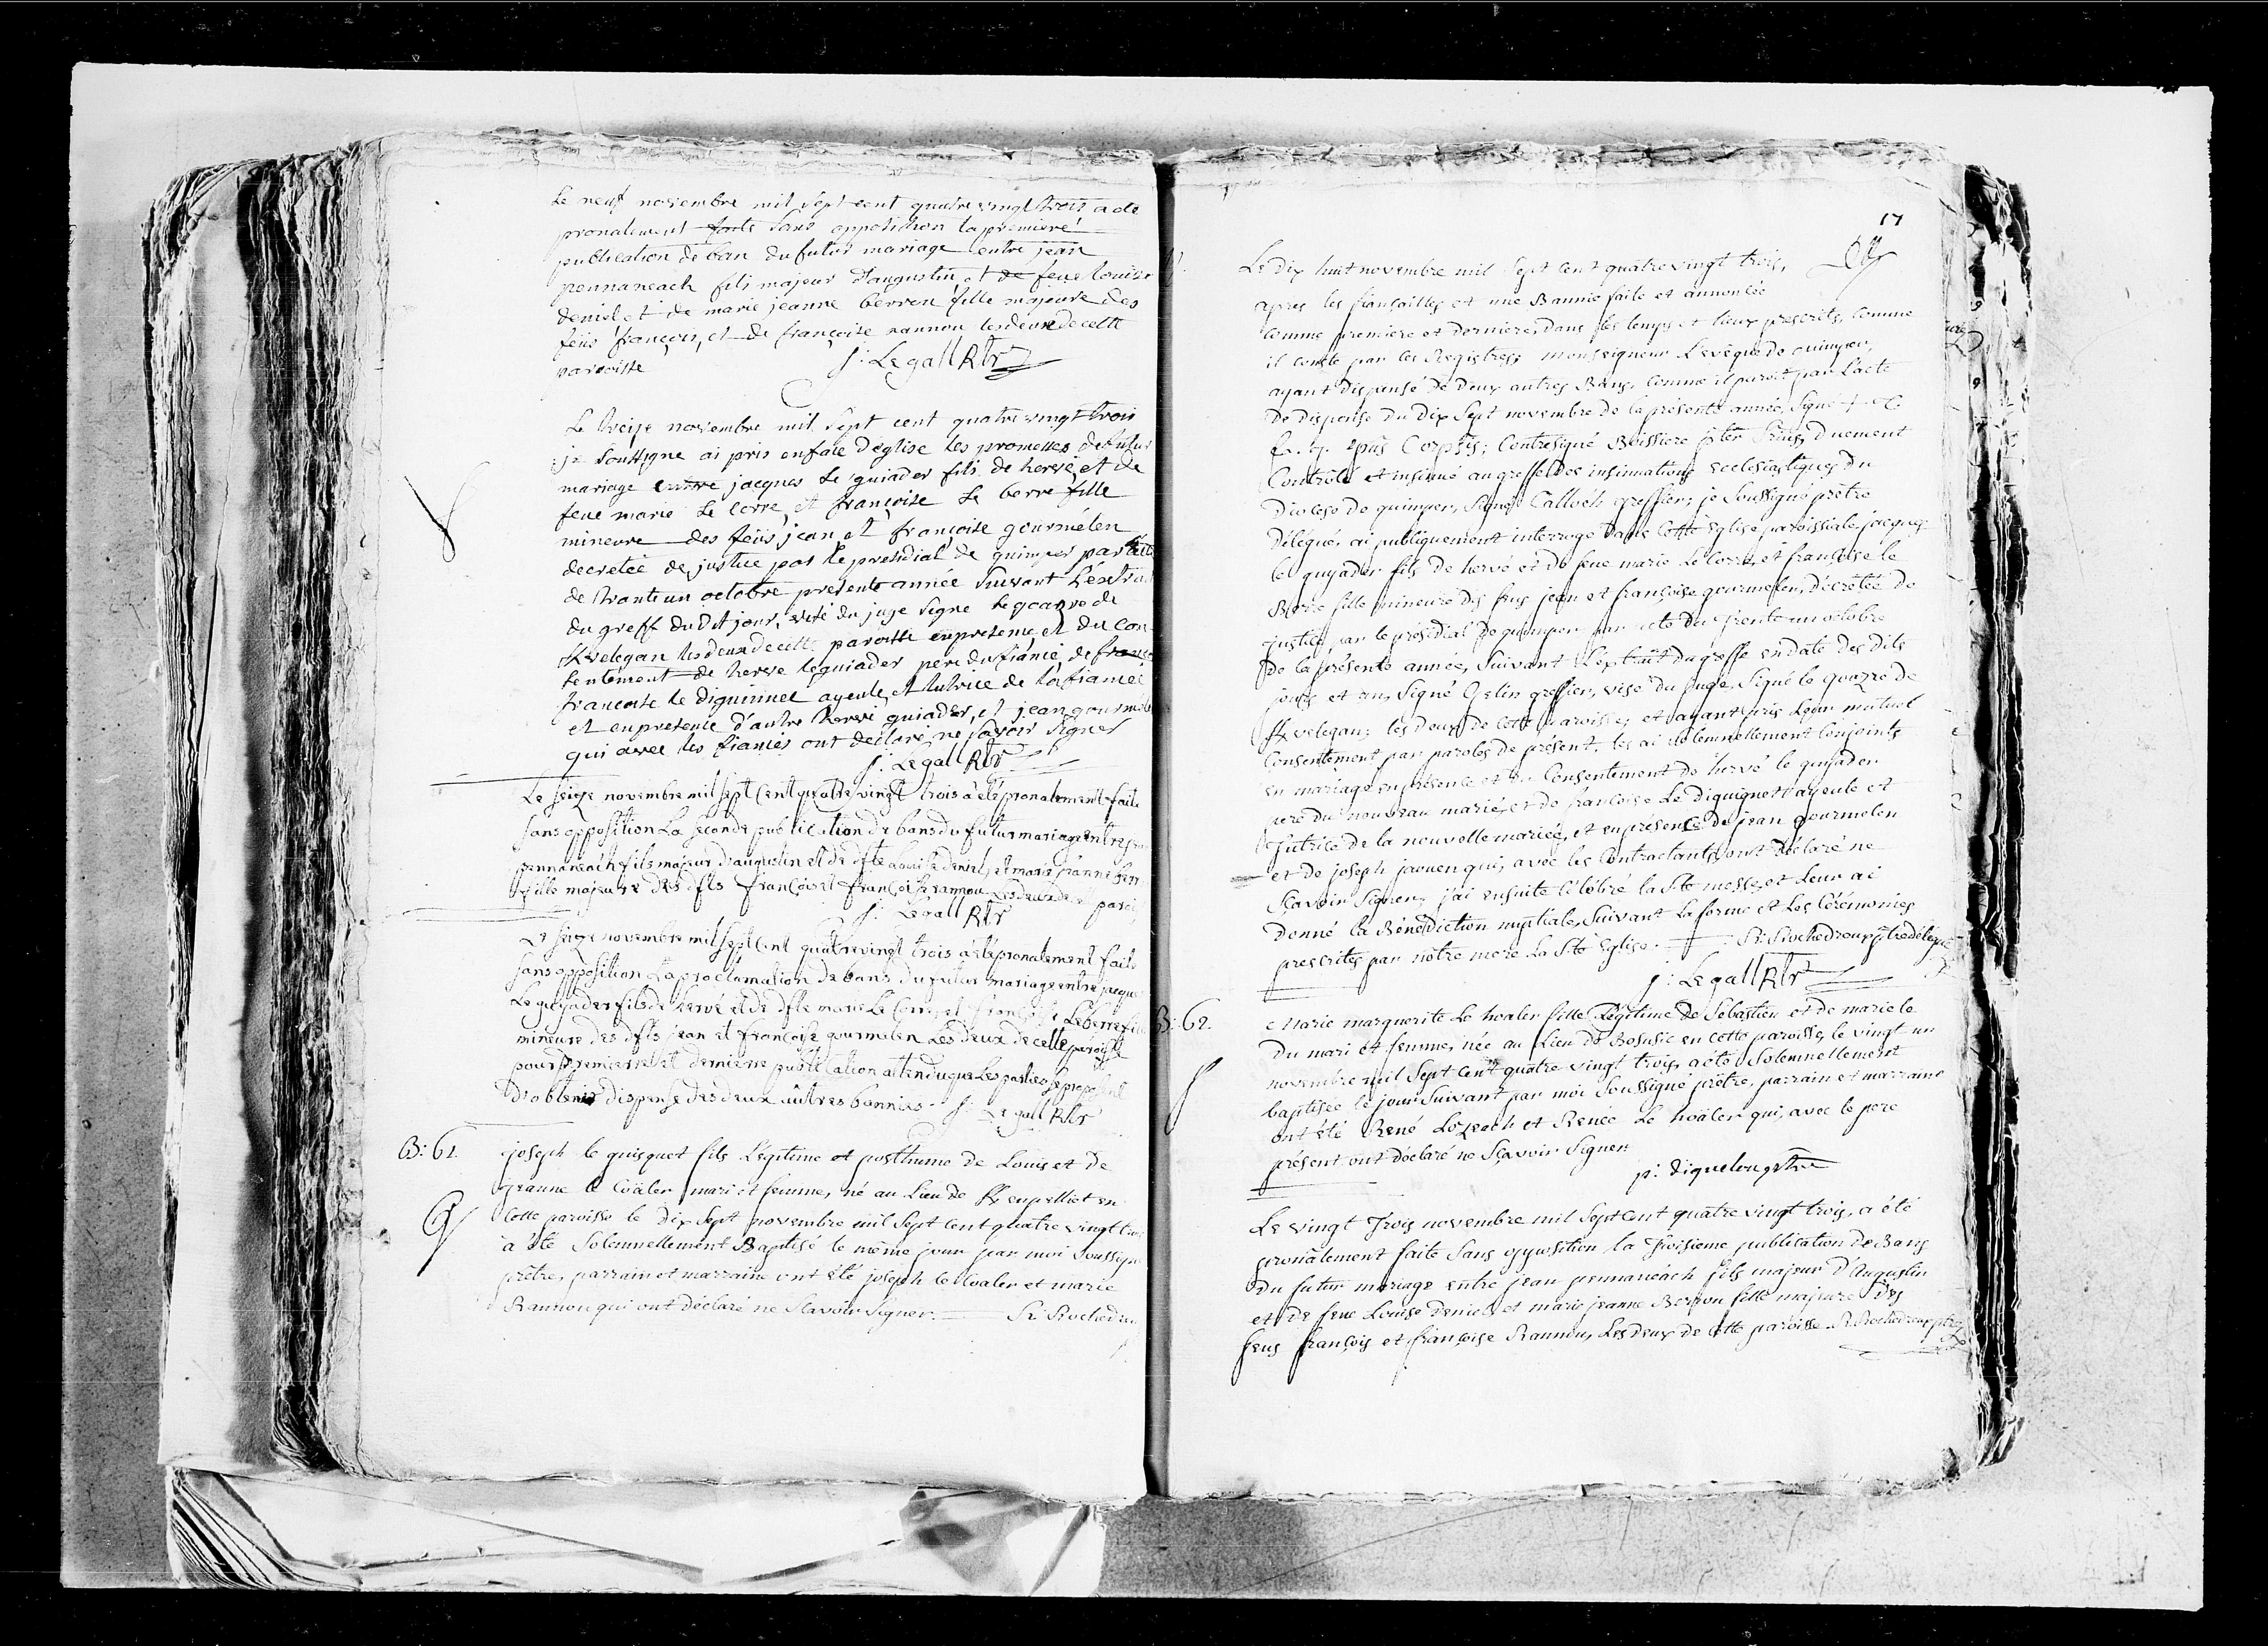 Le neuf novembre mil sept cent quatre vingt trois a ete
pronalement faite sans opposition la premiere
publication de ban du futur mariage entre jean
pennaneach fils majeur d'augustin, et de feue louise
deniel et de marie jeanne berron fille majeure des
feüs françois, et de françoise rannou les deux de cette
paroisse
j: Le gall Rtr
Le treize novembre mil sept cent quatre vingt trois
je soussigne ai pris en face d'église les promesses de futur
mariage entre jacques Le guiader fils de hervé, et de
feue marie Le corre, et françoise Le berre fille
mineure des feüs jean et françoise gourmélen
decretée de justice par le presidial de quimper par acte
de trente un octobre presente année suivant L'extrait
du greff du dit jour, visé du juge signe Le goazre de
Kvelegan les deux de cette paroisse en presence, et du con
sentement de herve le guiader pere du fiancé, de
francoise Le diguinnel ayeule, et tutrice de la fiancée
et en presence d'autre hervé guiader, et jean gourmelen
qui avec les fiancés ont déclaré ne savoir signer
j: Le gall Rtr
Le seize novembre mil sept Cent quatre vingt trois a été pronalement faite
sans opposition La seconde publication de bans du futur mariage entre jean
pennaneach fils majeur d'augustin et de dfte Louise deniel, et marie jeanne berr
fille majeure des dfts françois et françoise rannou Les deux de paroi
j: Le gall Rtr
Le seize novembre mil sept Cent quatre vingt trois a été pronalement faite
sans opposition La proclamation de bans du futur mariage entre jacque
Le guyader fils de hervé et de dfte marie Le Corre, et françoise Le berre fille
mineure des dfts jean et françoise gourmelen Les deux de cette paroisse
pour premiere et derniere publication attendu que Les parties se proposent
D'obtenir dispense des deux autres bannies. j: Le gall Rtr
B: 61.
joseph le guisquet fils Légitime et posthume de Louis et de
jeanne Le Coäler mari et femme, né au Lieu de Kenpelliet en
Cette paroisse le dix sept novembre mil sept cent quatre vingt trois
a été solemnellement Baptisé le même jour par moi soussigné
prêtre, parrain et marraine ont été joseph le Coäler et marie
Rannou qui ont déclaré ne sçavoir signer. R: Rochedreu
17
Le dix huit novembre mil sept cent quatre vingt trois,
apres les fiançailles et une Bannie faite et annoncée
comme premiere et derniere, dans les temps et lieux prescrits, comme
il conste par les Registres; monseigneur L'evêque de quimper,
ayant dispensé de deux autres Bans, comme il paroit par L'acte
de dispense du dix sept novembre de la présente année, signé +
fr. j. epûs Corpsis; Contresigné Boissiere duement
Contrôlé et insinué au greffe des insinuations Ecclésiastiques du
Diocèse de quimper, signé Calloch greffier; je soussigné prêtre
délégué, ai publiquement interrogé dans cette Eglise paroissiale jacques
le guyader fils de hervé et de feue marie Le Corre, et françoise le
Berre fille mineure des feus jean et françoise gourmelen, décrétée de
justice, par le présidial de quimper par acte du trente un octobre
de la présente année, suivant L'extrait du greffe en date des dits
jours et an, signé Gelin greffier, visé du juge, signé le goazre de
Kvelegan; les deux de cette paroisse, et ayant pris leur mutuel
Consentement par paroles de présent, les ai solemnellement Conjoints
en mariage en présence et du Consentement de hervé le guyader
pere du nouveau marié, et de françoise Le diguignel ayeule et
tutrice de la nouvelle mariée, et en présence de jean gourmelen
et de joseph jaouen qui, avec les Contractants, ont déclaré ne
sçavoir signer, j'ai ensuite célébré la Ste messe, et leur ai
donné la Bénédiction nuptiale, suivant la forme et les Cérémonies
prescrites par nôtre mere la Ste Eglise. R: Rochedreux ptre délégué
j: Le gall Rtr
B: 62.
Marie marguerite Le hoaler fille Légitime de Sébastien et de marie le
Du mari et femme, née au Lieu de Bosusic en cette paroisse, le vingt un
novembre mil sept cent quatre vingt trois, a été solemnellement
baptisée le jour suivant par moi soussigné prêtre, parrain et marraine
ont été René Lozeach et Renée Le hoäler qui, avec le pere
présent ont déclaré ne sçavoir signer.
p: diquelou ptre
Le vingt trois novembre mil sept cent quatre vingt trois, a été
pronalement faite sans opposition la troisieme publication de Bans
du futur mariage entre jean pennanéach fils majeur d'Augustin
et de feue Louise deniel, et marie jeanne Berrou fille majeure des
feus françois et françoise Rannou, Les deux de cette paroisse. R. Rochedreux ptre